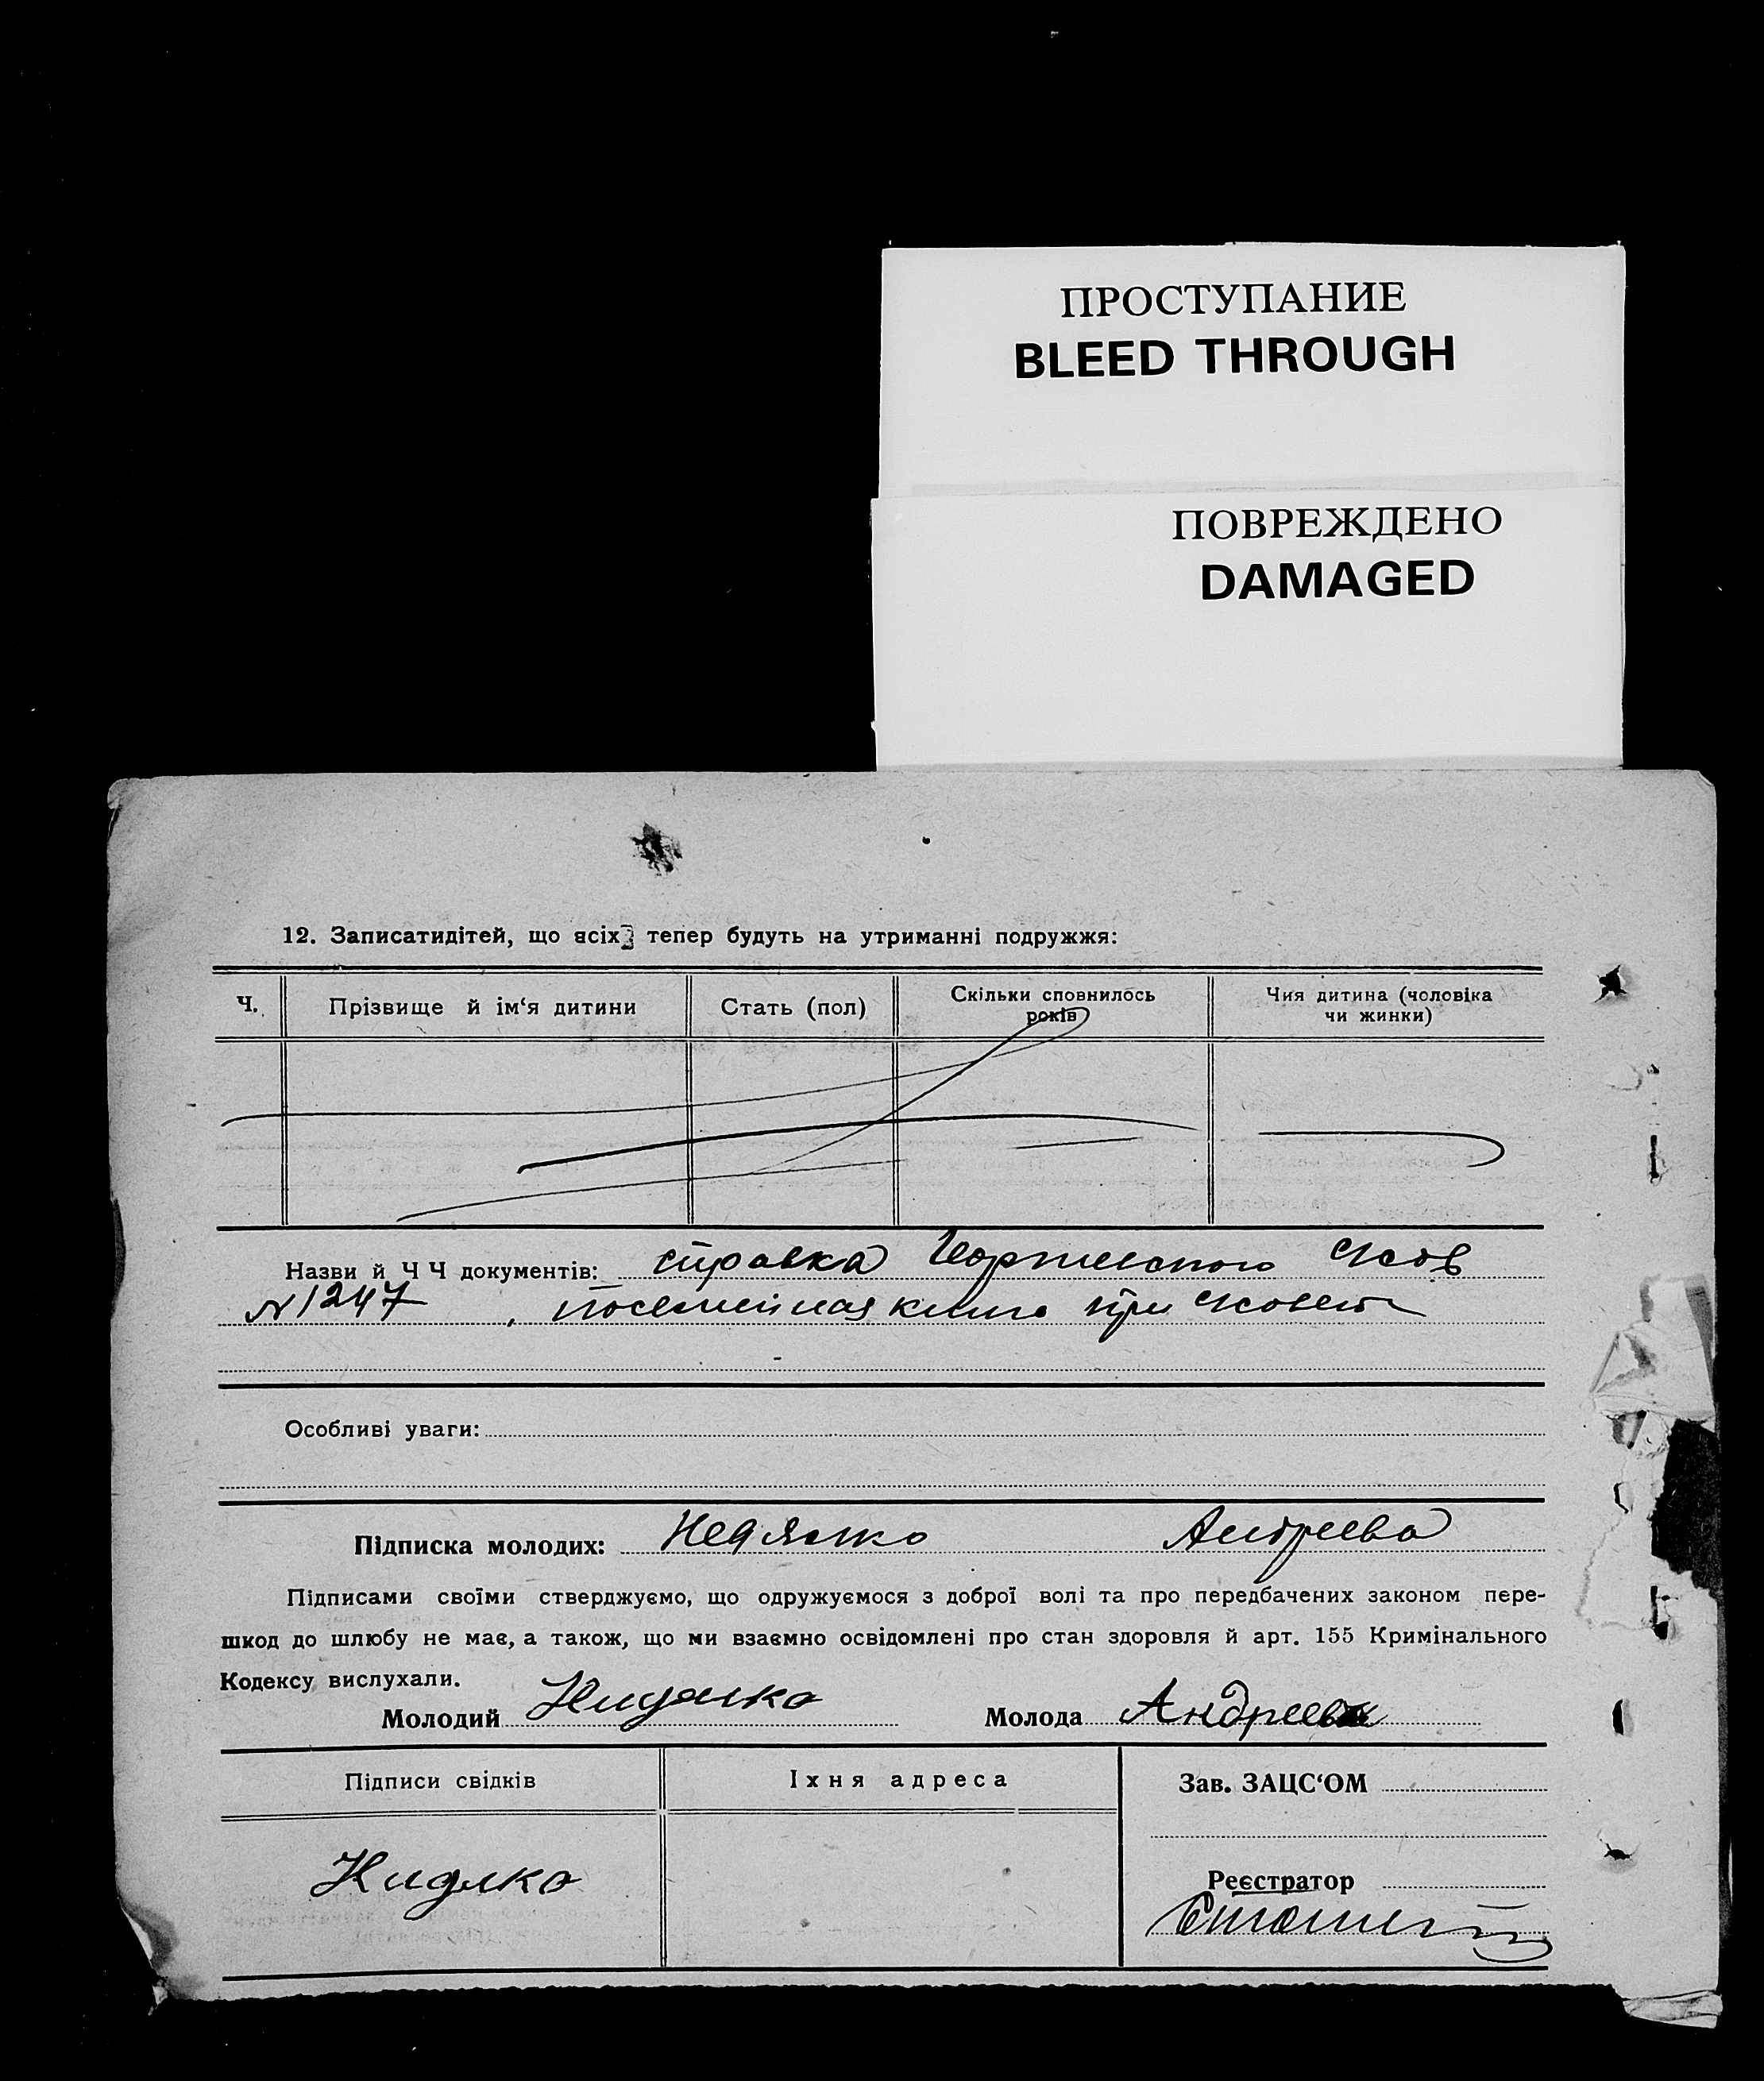 ПРОСТУПАНИЕ
BLEED THROUGH
ПОВРЕЖДЕНО
DAMAGED
12. Записатидітей, що всіх тепер будуть на утриманні подружжя:
Ч. Прізвище й ім‘я дитини Стать (пол) Скільки сповнилось Чия дитина (чоловіка
років чи жинки)
Назви й Ч Ч документів: справка
N 1247, посемейная книга при
Особливі уваги:
Підписка молодих: Андреева
Підписами своїми стверджуємо, що одружуємося з доброї волі та про передбачених законом пере-
шкод до шлюбу не має, а також, що ми взаємно освідомлені про стан здоровля й арт. 155 Кримінального
Кодексу вислухали.
Молодий Молода Андреева
Підписи свідків Їхня адреса Зав. ЗАЦС‘ОМ
Реєстратор